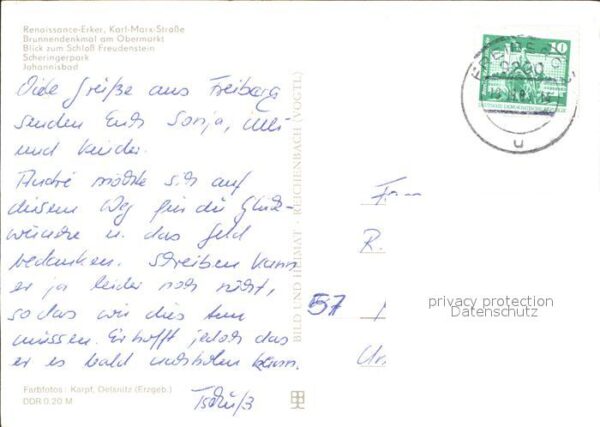 Renaissance-Erker, Karl-Marx-Straße
Brunnendenkmal am Obermarkt
Blick zum Schloß Freudenstein
Scheringerpark
Johannisbad
Viele Grüße aus Freiberg
senden Euch Sonja, Ulli
und Kinder.
André möchte sich auf
diesem Weg für die Glück-
wünsche u. das Geld
bedanken. Schreiben kann
er ja leider noch nicht,
so das wir dies tun
müssen. Er hofft jedoch das
er es bald nachholen kann.
Tschüß
Farbfotos: Karpf, Oelsnitz (Erzgeb.)
DDR 0,20 M
BILD UND HEIMAT · REICHENBACH (VOGTL)
10
DEUTSCHE DEMOKRATISCHE REPUBLIK
9200
u
R.
57
privacy protection
Datenschutz